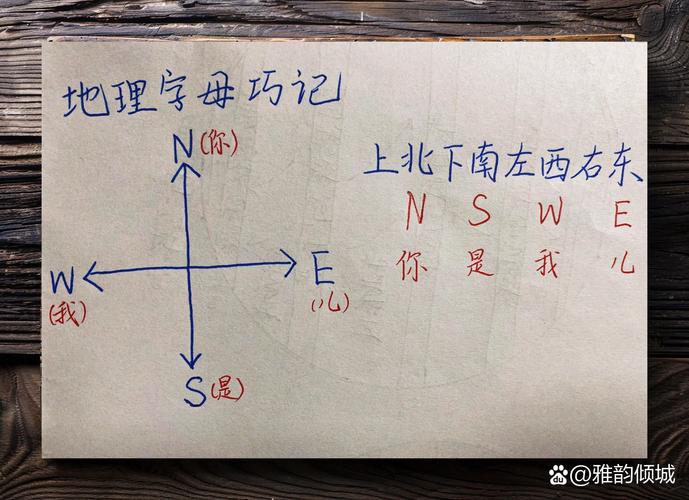 地理字母巧记
N(你)
上北下南左西右东
N S W E
你 是 我 儿
W
(我)
E
(儿)
S(是)
@雅韵倾城